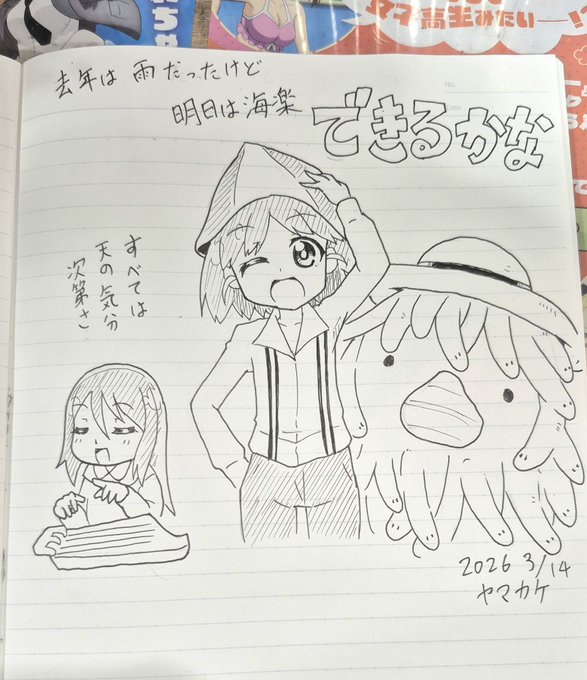 去年は雨だったけど
明日は海楽
できるかな
すべては
天の気分
次第さ
2026 3/14
ヤマカケ
No.
Date
女子高生みたいーー!!